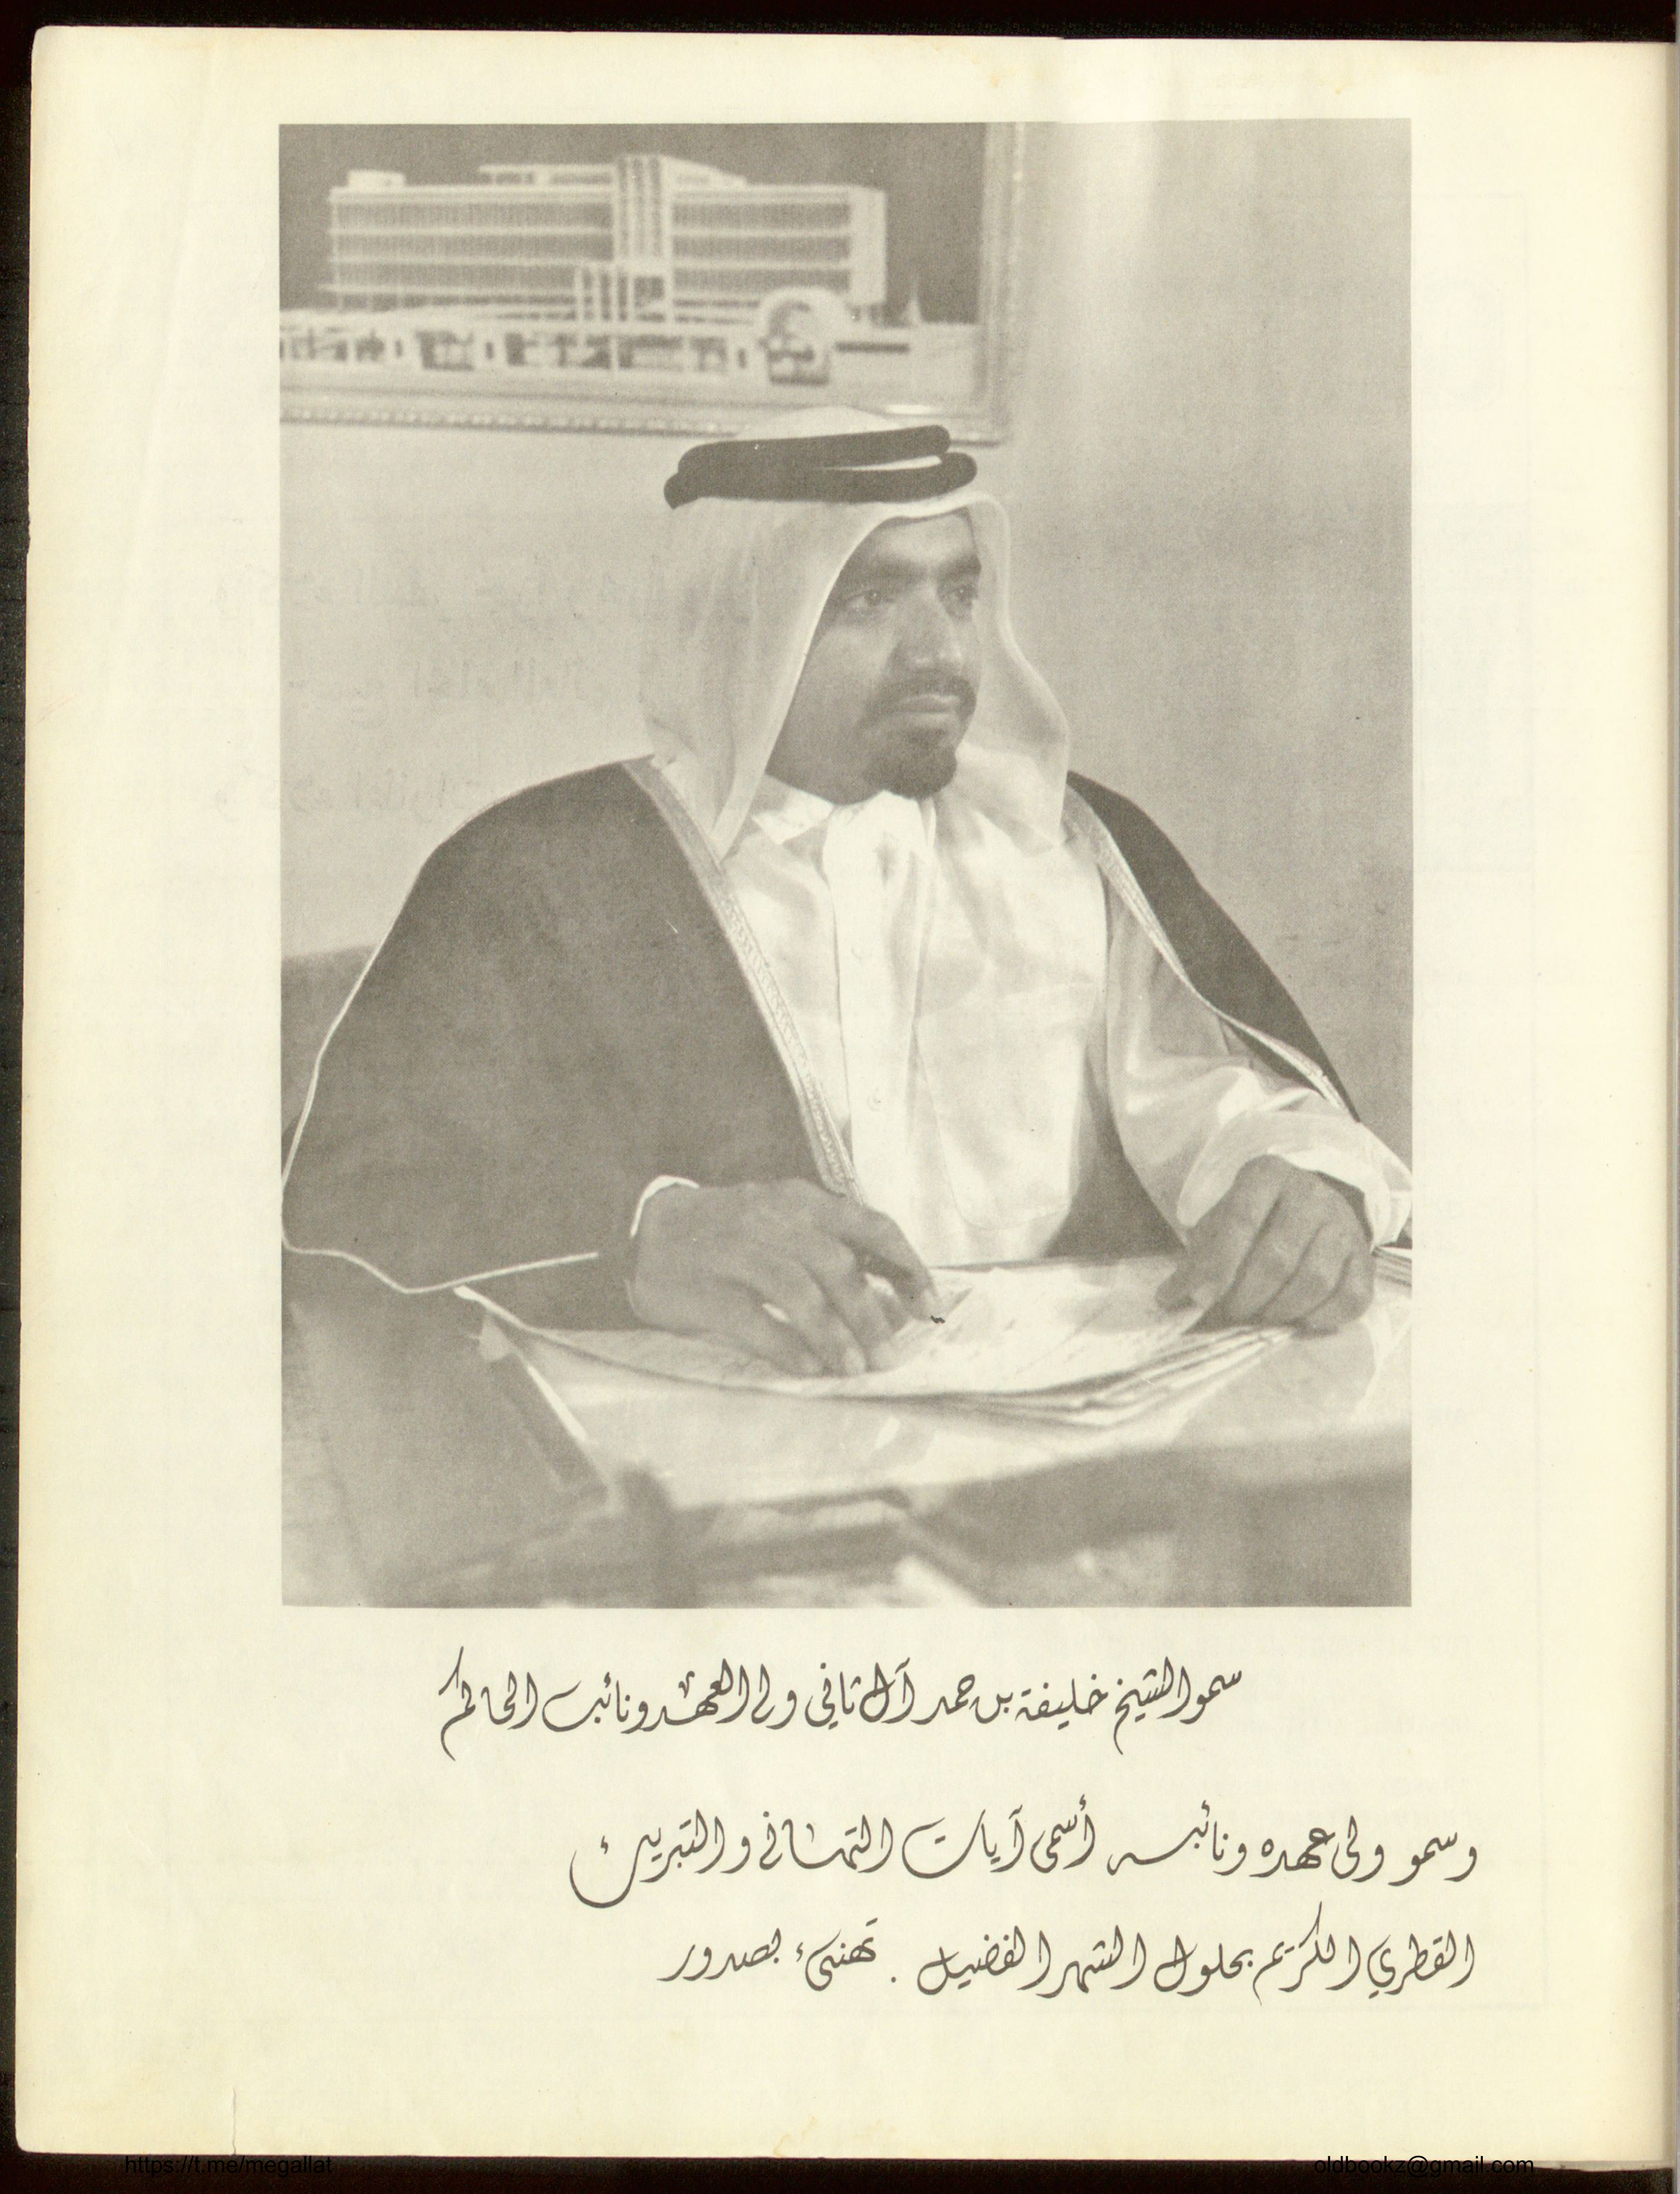 سمو الشيخ خليفة بن حمد آل ثاني ولي العهد ونائب الحاكم
وسمو ولي عهده ونائبه أسمى آيات التهاني والتبريك
القطري الكريم بحلول الشهر الفضيل . تهنئ بصدور
https://t.me/megallat
oldbookz@gmail.com